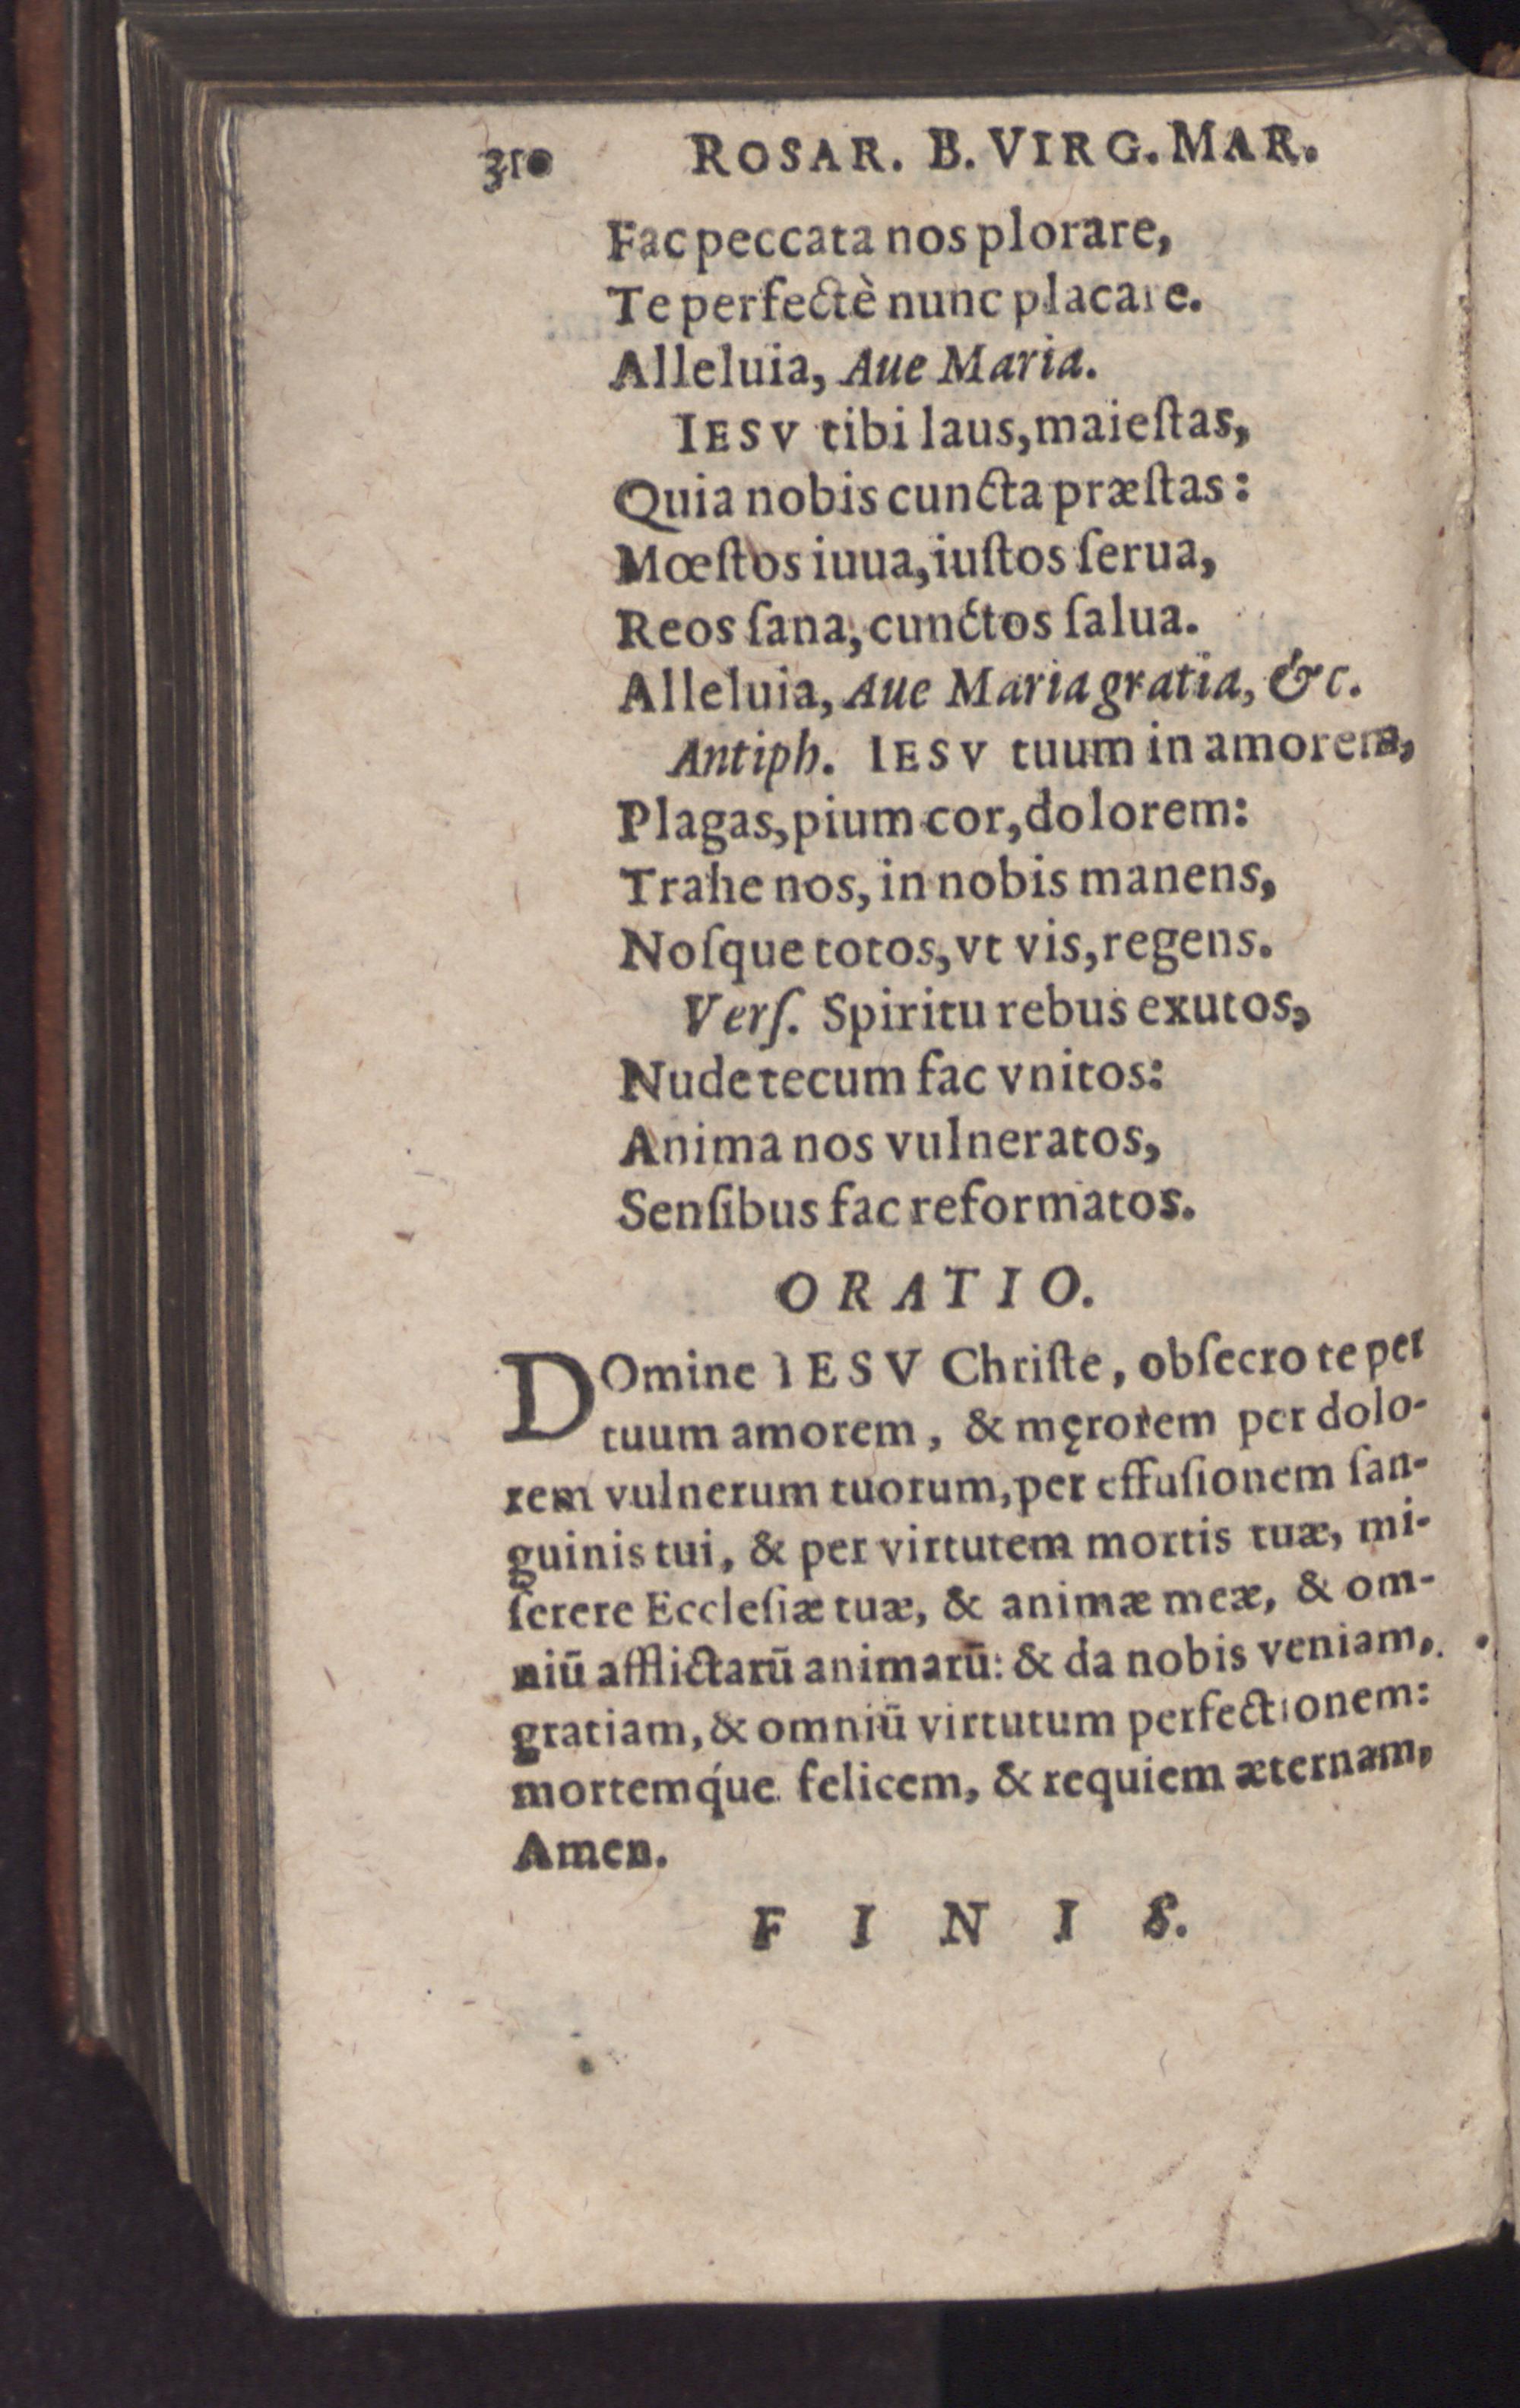 310 ROSAR. B. VIRG. MAR.
Fac peccata nos plorare,
Te perfectè nunc placare.
Alleluia, Aue Maria.
IESV tibi laus, maieſtas,
Quia nobis cuncta præſtas:
Mœſtos iuua, iuſtos ſerua,
Reos ſana, cunctos ſalua.
Alleluia, Aue Maria gratia, &c.
Antiph. IESV tuum in amorem,
Plagas, pium cor, dolorem:
Trahe nos, in nobis manens,
Noſque totos, vt vis, regens.
Verſ. Spiritu rebus exutos,
Nude tecum fac vnitos:
Anima nos vulneratos,
Senſibus fac reformatos.
ORATIO.
DOmine IESV Chriſte, obſecro te per
tuum amorem, & męrorem per dolo-
rem vulnerum tuorum, per effuſionem ſan-
guinis tui, & per virtutem mortis tuæ, mi-
ſerere Eccleſiæ tuæ, & animæ meæ, & om-
niū afflictarū animarū: & da nobis veniam,
gratiam, & omniū virtutum perfectionem:
mortemq́ue felicem, & requiem æternam,
Amen.
FINIS.